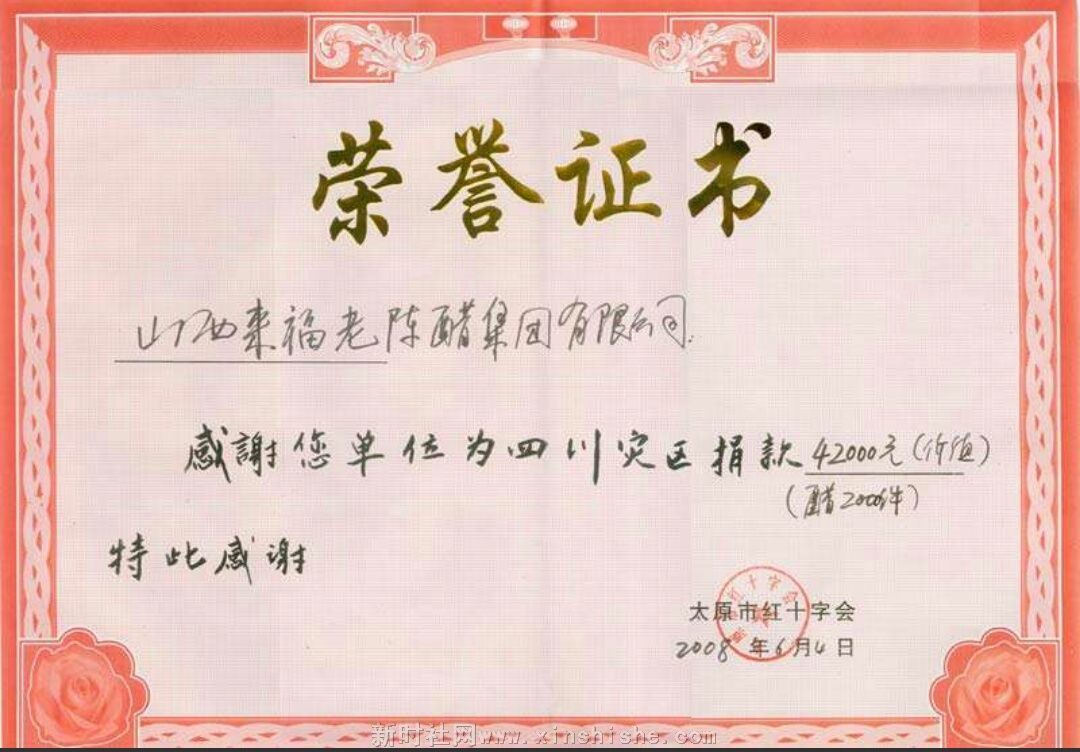 荣誉证书
山西来福老陈醋集团有限公司:
感謝您单位为四川灾区捐款42000元(价值)
(醋2000件)
特此感谢
太原市红十字会
2008年6月4日
新时社网www.xinshishe.com